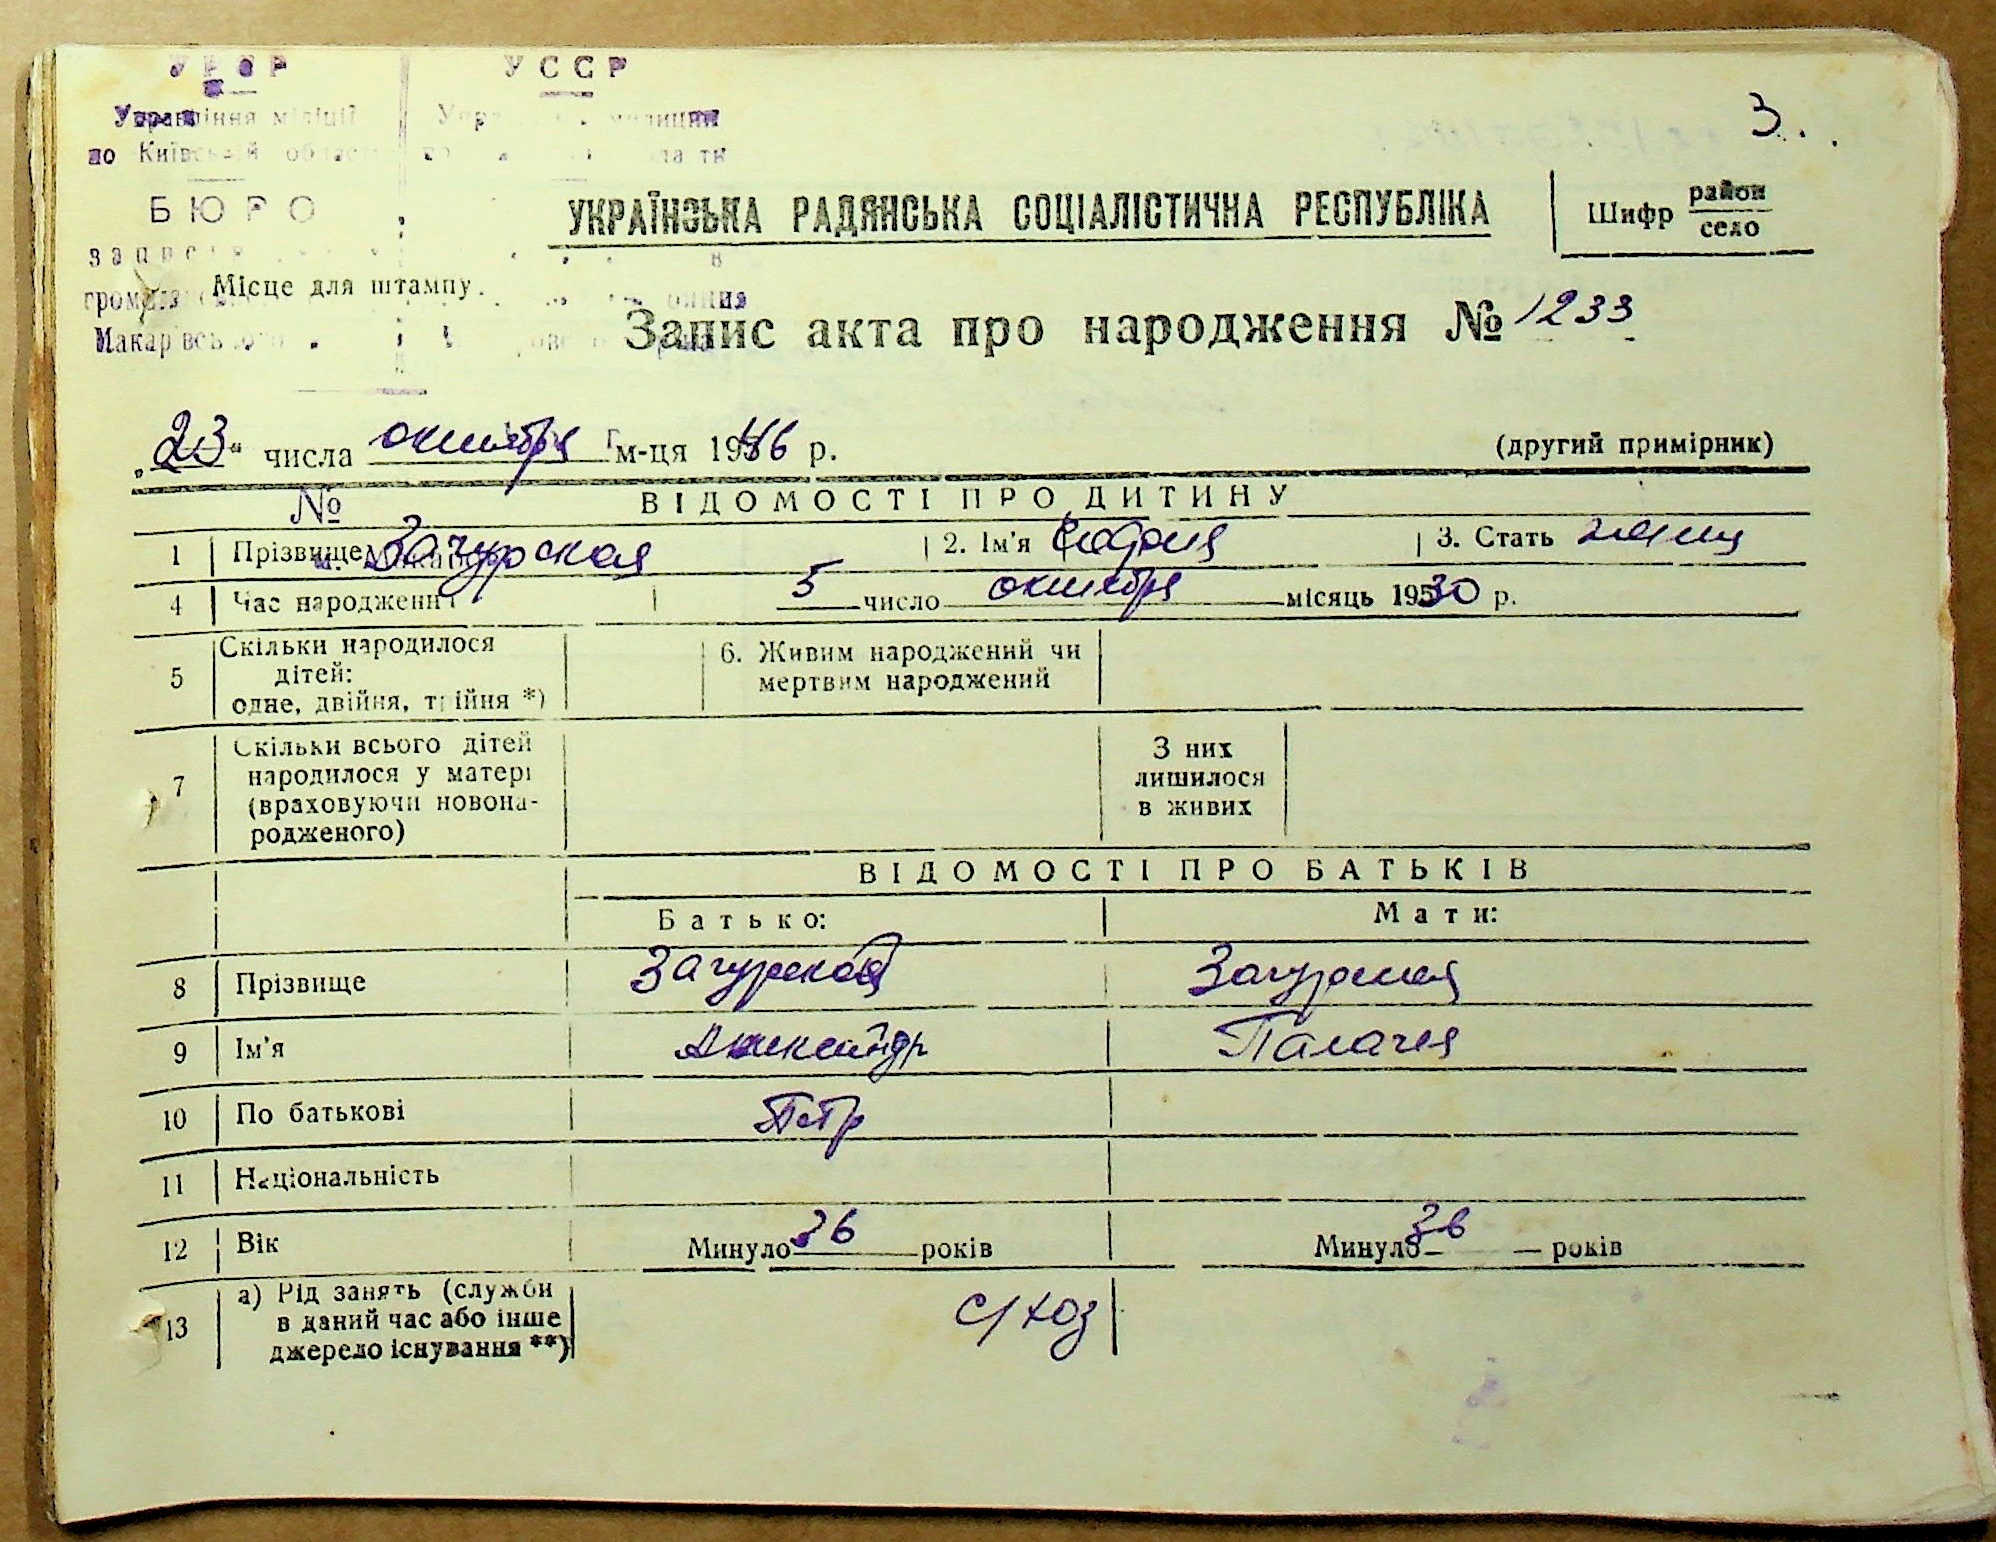 УРСР УССР
Управління міліції
по Київській
БЮРО
3.
УКРАЇНСЬКА РАДЯНСЬКА СОЦІАЛІСТИЧНА РЕСПУБЛІКА
Шифр район
село
Місце для штампу.
Запис акта про народження № 1233
„23" числа октября м-ця 1946 р.
(другий примірник)
№
ВІДОМОСТІ ПРО ДИТИНУ
1 Прізвище Загурская 2. Ім'я София 3. Стать женщ
4 Час народження 5 число октября місяць 1930 р.
5 Скільки народилося
дітей:
одне, двійня, трійня *)
6. Живим народжений чи
мертвим народжений
7 Скільки всього дітей
народилося у матері
(враховуючи новона-
родженого)
З них
лишилося
в живих
ВІДОМОСТІ ПРО БАТЬКІВ
Батько: Мати:
8 Прізвище Загурский Загурская
9 Ім'я Александр Палагея
10 По батькові Петр
11 Національність
12 Вік Минуло 36 років Минуло 36 років
13 а) Рід занять (служби
в даний час або інше
джерело існування **)
с/хоз